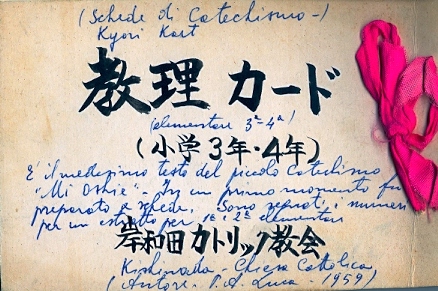 (Schede di Catechismo-)
Kyori Kart
教理 カード
(elementare 3ª-4ª)
(小学3年・4年)
E' il medesimo testo del piccolo Catechismo
"Mi Oshie" - In un primo momento fu
preparato a schede. Sono segnati i numeri
per un estratto per 1ª e 2ª elementari
岸和田カトリック教会
Kishiwada - Chiesa Cattolica
(Autore - P. A. Luca - 1959)